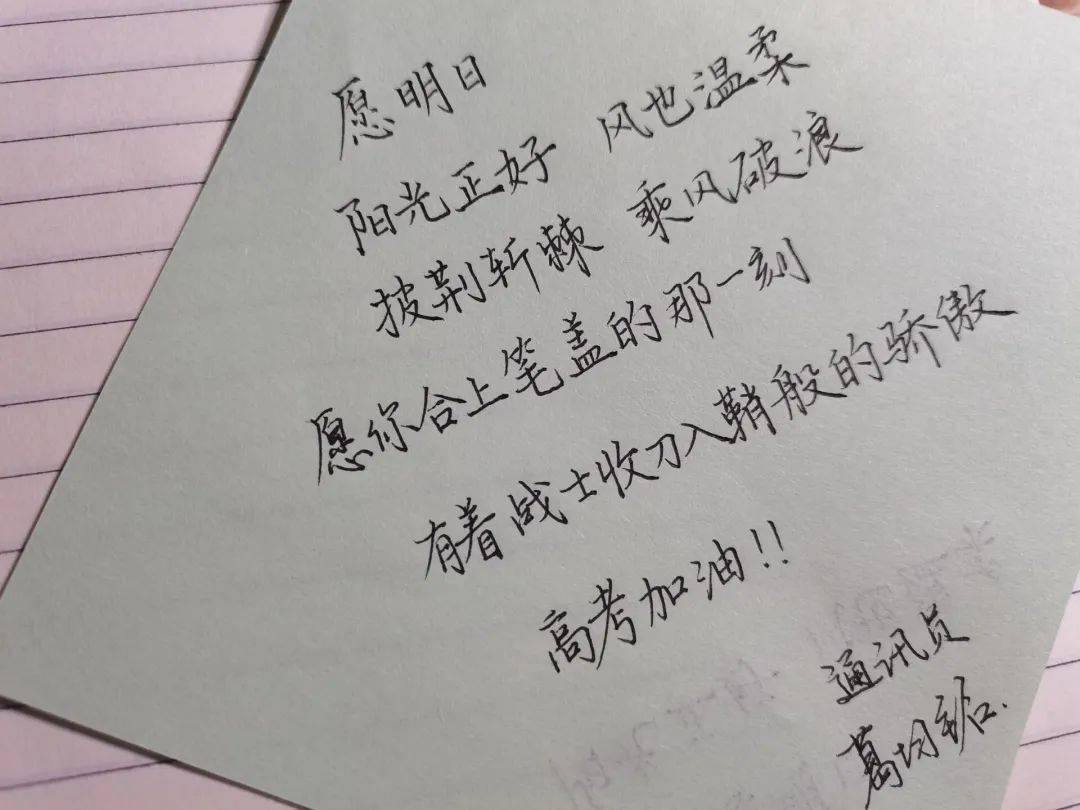 愿明日
阳光正好 风也温柔
披荆斩棘 乘风破浪
愿你合上笔盖的那一刻
有着战士收刀入鞘般的骄傲
高考加油!!
通讯员
葛均